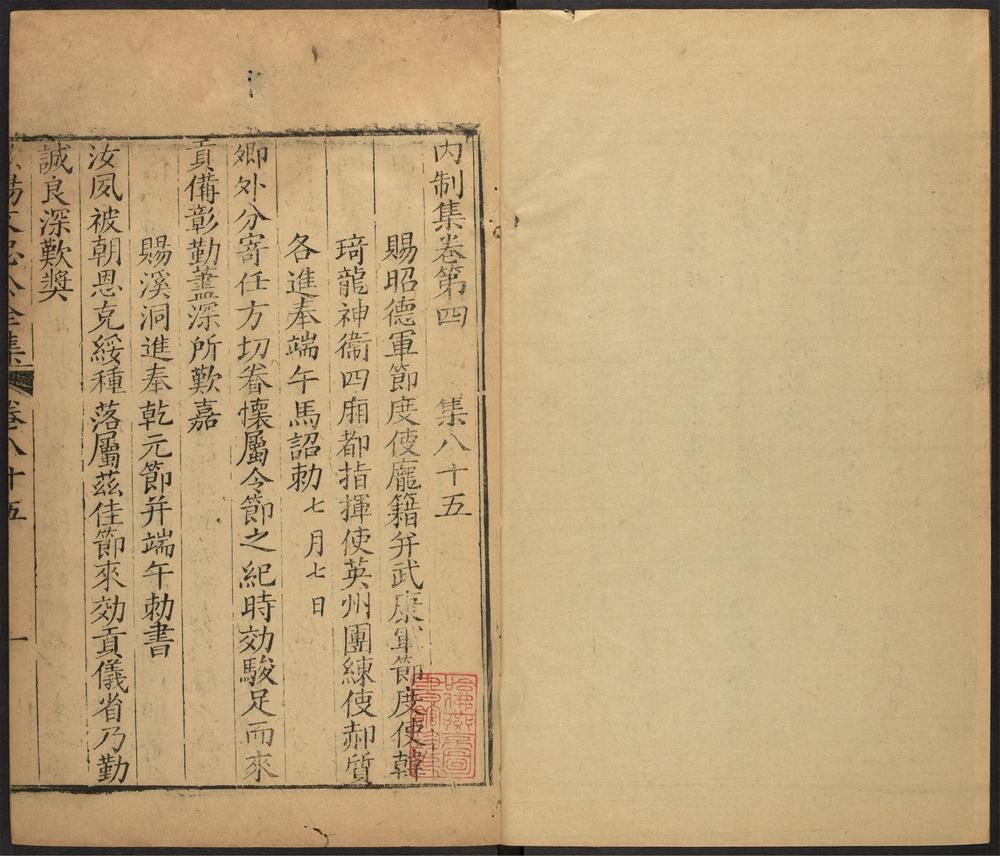 内制集卷第四 集八十五
賜昭德軍節度使龐籍并武康軍節度使韓
琦龍神衞四廂都指揮使英州團練使郝質
各進奉端午馬詔勅七月七日
卿外分寄任方切眷懷屬令節之紀時効駿足而來
貢備彰勤藎深所歎嘉
賜溪洞進奉乾元節并端午勅書
汝夙被朝恩克綏種落屬茲佳節來効貢儀省乃勤
誠良深歎奬
歐陽文忠公全集 卷八十五 一
哈佛燕京圖書館珍藏